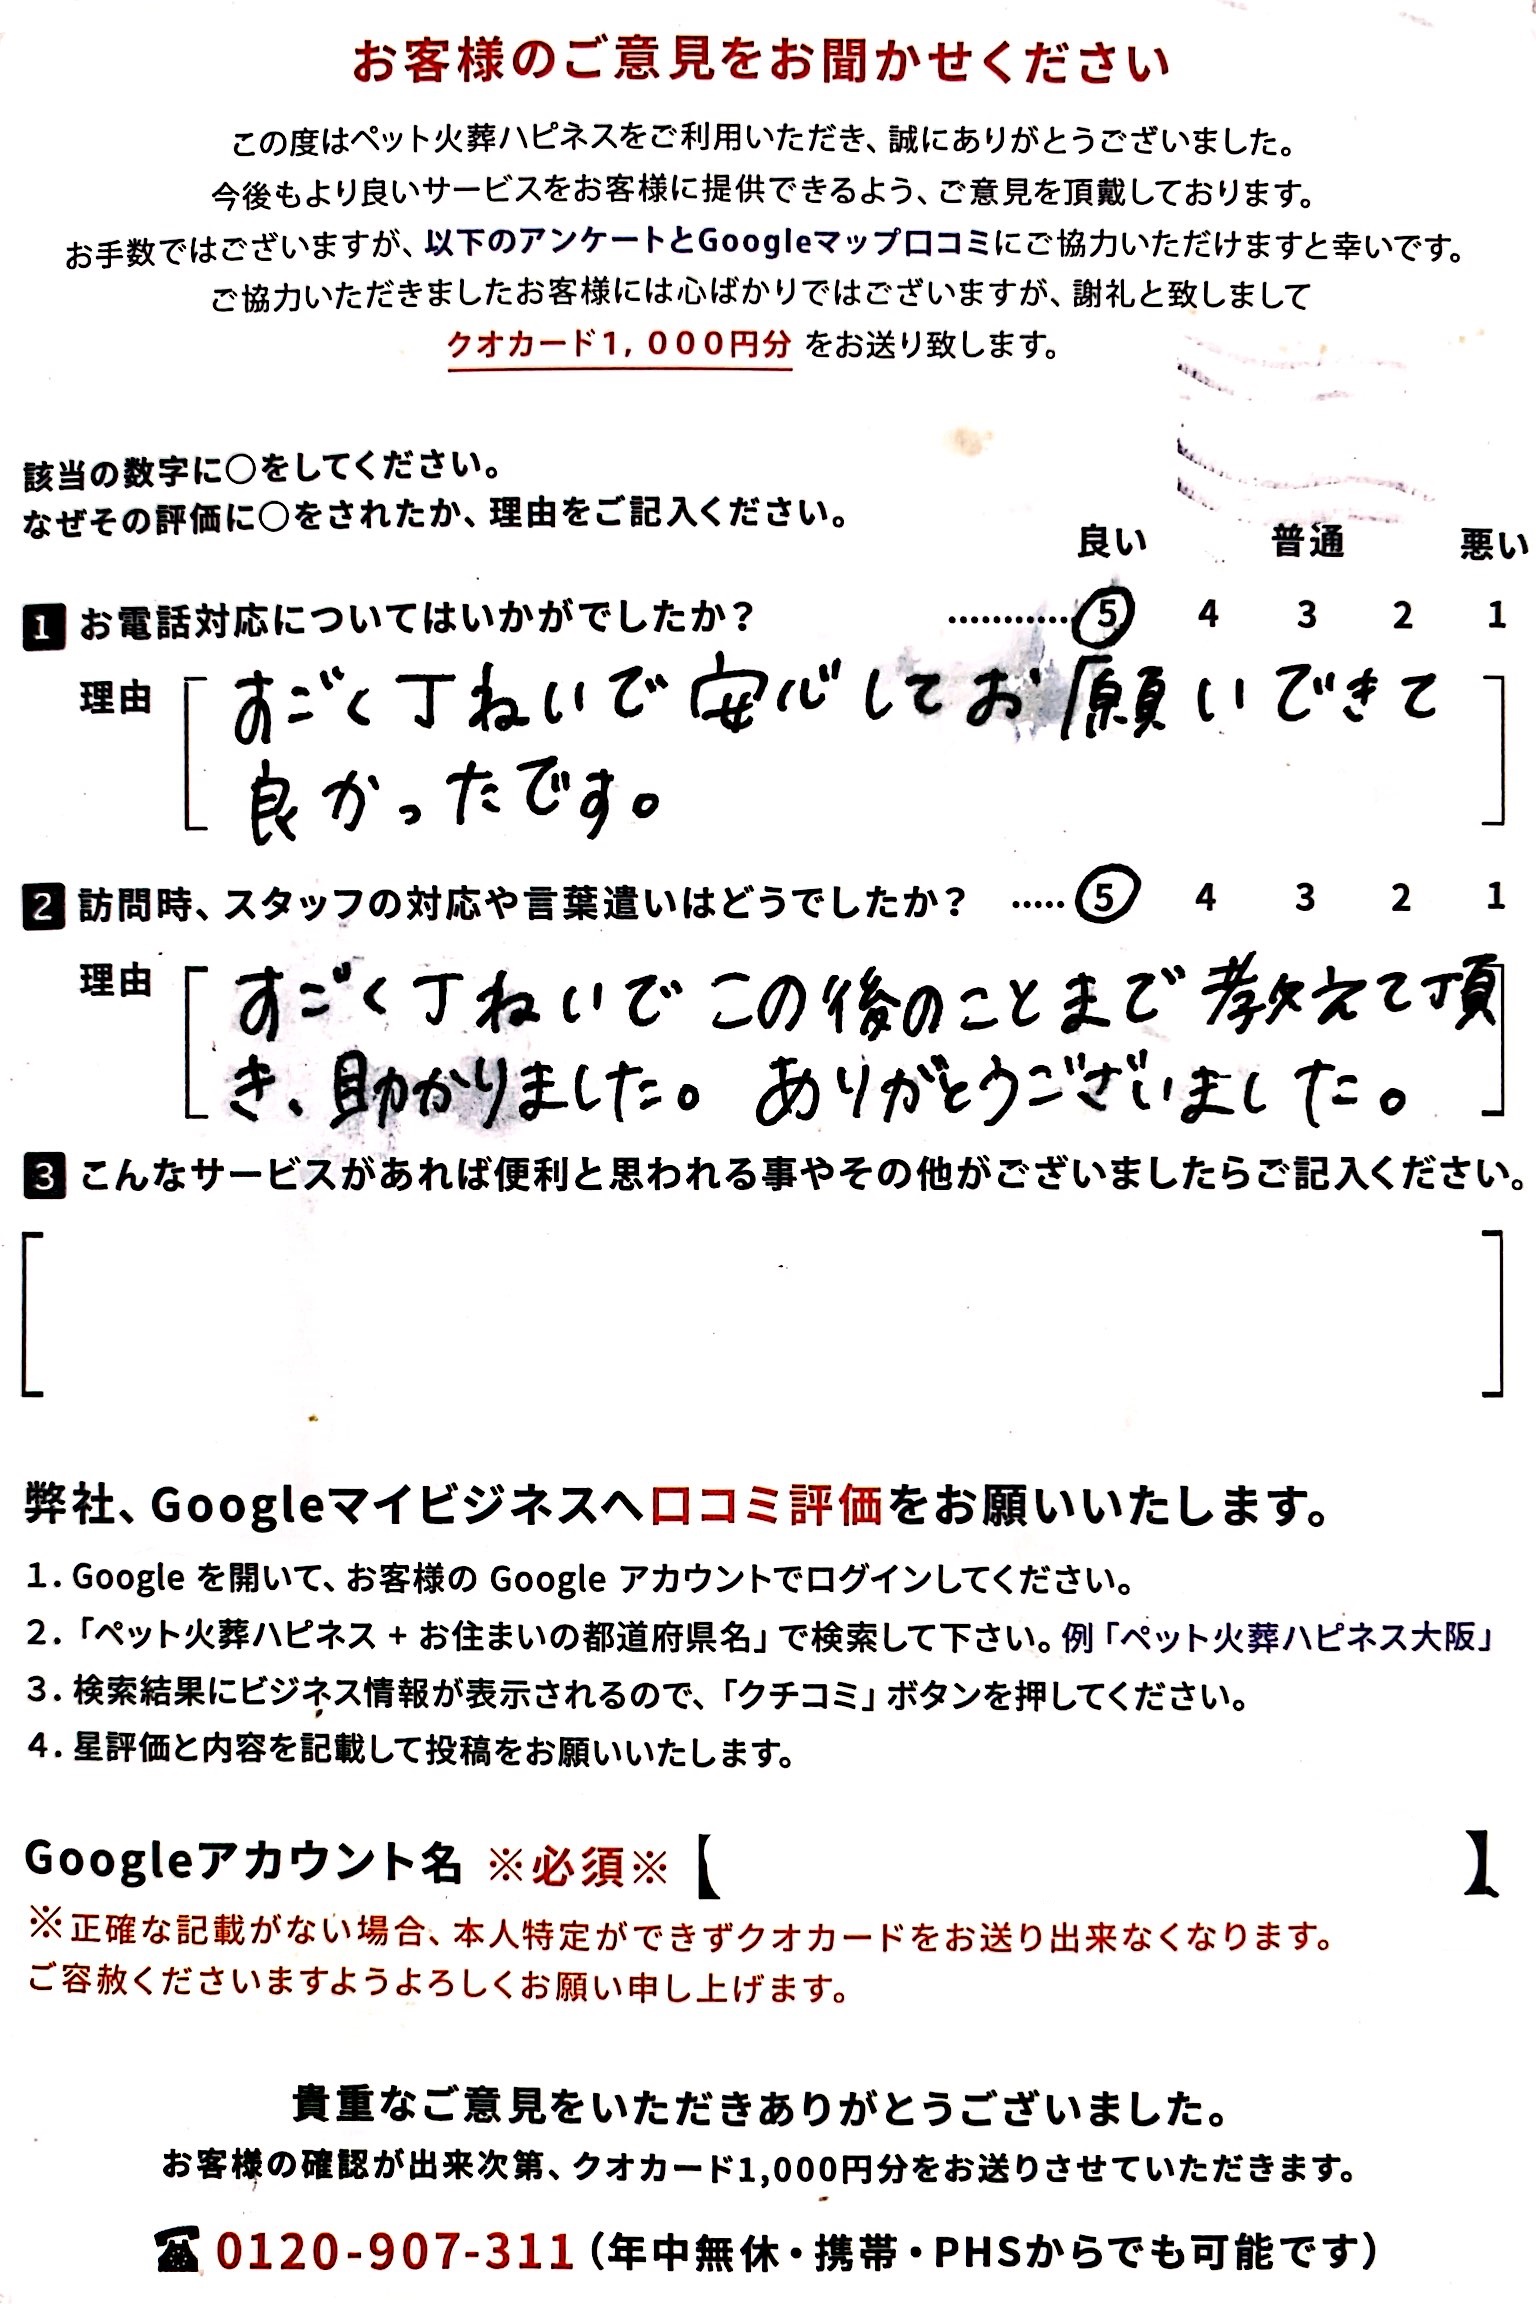 お客様のご意見をお聞かせください
この度はペット火葬ハピネスをご利用いただき、誠にありがとうございました。
今後もより良いサービスをお客様に提供できるよう、ご意見を頂戴しております。
お手数ではございますが、以下のアンケートとGoogleマップ口コミにご協力いただけますと幸いです。
ご協力いただきましたお客様には心ばかりではございますが、謝礼と致しまして
クオカード1,000円分 をお送り致します。
該当の数字に○をしてください。
なぜその評価に○をされたか、理由をご記入ください。
良い 普通 悪い
1 お電話対応についてはいかがでしたか? ............ 5 4 3 2 1
理由 すごく丁ねいで安心してお願いできて
良かったです。
2 訪問時、スタッフの対応や言葉遣いはどうでしたか? ..... 5 4 3 2 1
理由 すごく丁ねいでこの後のことまで教えて頂
き、助かりました。ありがとうございました。
3 こんなサービスがあれば便利と思われる事やその他がございましたらご記入ください。
弊社、Googleマイビジネスへ口コミ評価をお願いいたします。
1. Google を開いて、お客様の Google アカウントでログインしてください。
2.「ペット火葬ハピネス + お住まいの都道府県名」で検索して下さい。例「ペット火葬ハピネス大阪」
3. 検索結果にビジネス情報が表示されるので、「クチコミ」ボタンを押してください。
4. 星評価と内容を記載して投稿をお願いいたします。
Googleアカウント名 ※必須※【 】
※正確な記載がない場合、本人特定ができずクオカードをお送り出来なくなります。
ご容赦くださいますようよろしくお願い申し上げます。
貴重なご意見をいただきありがとうございました。
お客様の確認が出来次第、クオカード1,000円分をお送りさせていただきます。
☎0120-907-311（年中無休・携帯・PHSからでも可能です）